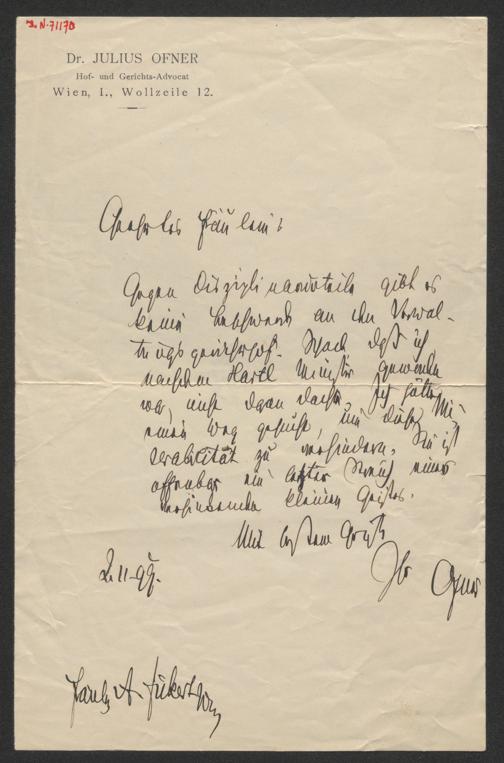 I.N. 71170
Dr. JULIUS OFNER
Hof- und Gerichts-Advocat
Wien, I., Wollzeile 12.
Geehrtes Fräulein!
Gegen Disziplinarurteile gibt es
keine Beschwerde an den Verwal-
tungsgerichtshof. Schade daß ich
nachdem Hartl Minister geworden
war, nicht daran dachte. Ich hätte
einen Weg gesucht, um diese
zu verhindern. Sie ist
offenbar ein letzter Streich eines
kleinen Geistes.
Mit bestem Gruß
Ihr Ofner
2.11.99.
Fräul. A. Fickert Wien